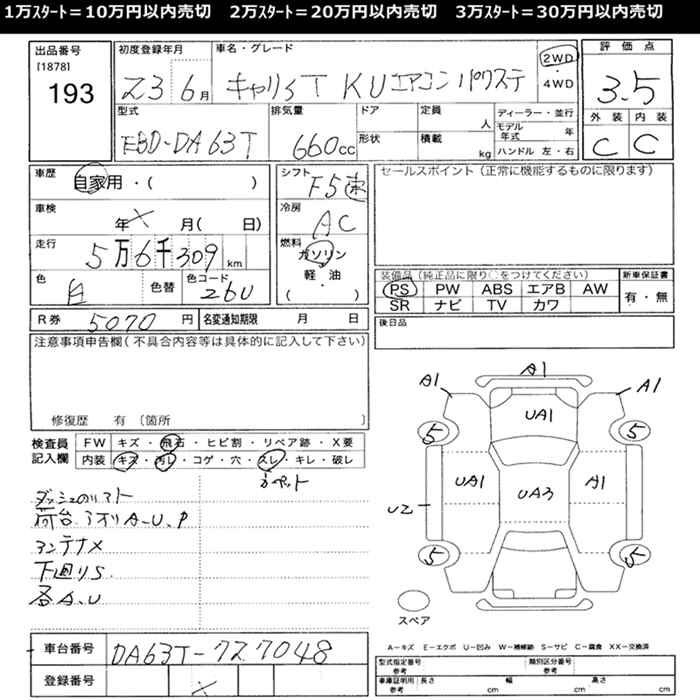 1万ｽﾀｰﾄ＝10万円以内売切　2万ｽﾀｰﾄ＝20万円以内売切　3万ｽﾀｰﾄ＝30万円以内売切
出品番号 初度登録年月 車名・グレード 評価点
[1878]
193 Z3 6月 キャリイT KU エアコン パワステ 2WD・4WD 3.5
型式 排気量 ドア 定員 人 ディーラー・並行 外装 内装
EBD-DA63T 660cc 形状 積載 kg モデル年式 年 ハンドル 左・右 C C
車歴 自家用・( ) シフト F5速 セールスポイント (正常に機能するものに限ります)
車検 年 × 月( 日) 冷房 AC
走行 5万6千309km 燃料 ガソリン
軽・油
・( )
色 白 色替 色コード 26U 装備品 (純正品に限り○をつけてください) 新車保証書
PS PW ABS エアB AW 有・無
SR ナビ TV カワ
R券 5070円 名変通知期限 月 日 後日品
注意事項申告欄(不具合内容等は具体的に記入して下さい)
修復歴 有 〔箇所 〕
検査員記入欄 FW キズ・飛石・ヒビ割・リペア跡・X要
内装 キズ・汚レ・コゲ・穴・スレ・キレ・破レ
カペット
荷台.アオリA-U.P
アンテナ×
下廻りS
各A.U
A1
A1 A1
UA1
5 5
UA1 UA3 A1
U2
5 5
スペア
A－キズ E－エクボ U－凹み W－補修跡 S－サビ C－腐食 XX－交換済
車台番号 DA63T-727048
登録番号 ×
型式指定番号 参考 類別区分番号 参考
車庫証明用 参考 長さ cm 幅 cm 高さ cm